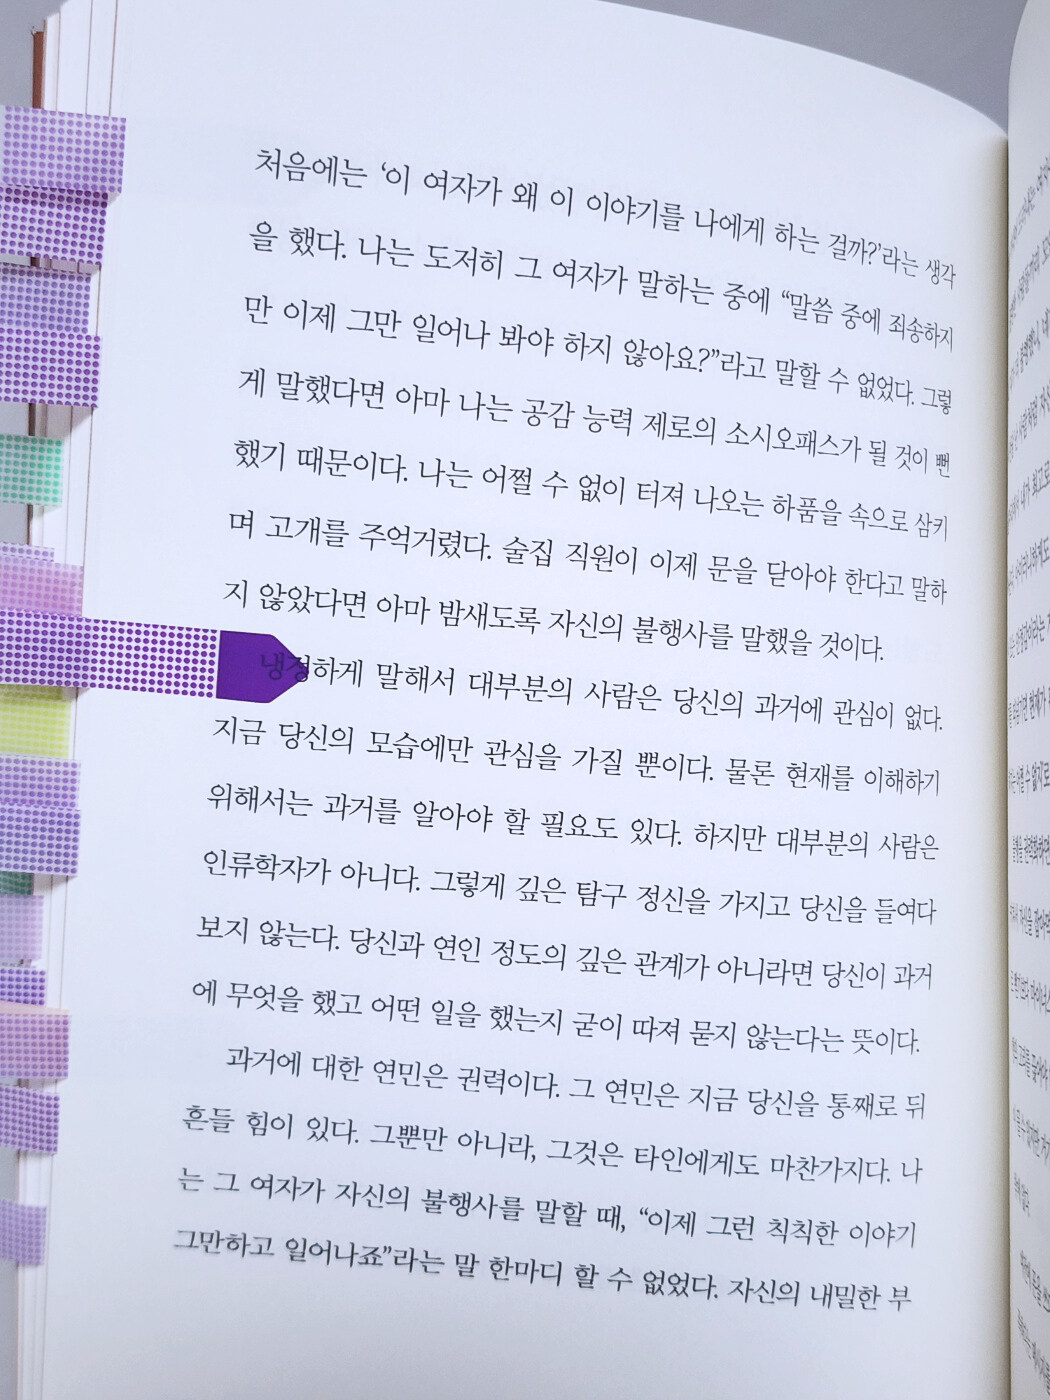 처음에는 ‘이 여자가 왜 이 이야기를 나에게 하는 걸까?’라는 생각
을 했다. 나는 도저히 그 여자가 말하는 중에 “말씀 중에 죄송하지
만 이제 그만 일어나 봐야 하지 않아요?”라고 말할 수 없었다. 그렇
게 말했다면 아마 나는 공감 능력 제로의 소시오패스가 될 것이 뻔
했기 때문이다. 나는 어쩔 수 없이 터져 나오는 하품을 속으로 삼키
며 고개를 주억거렸다. 술집 직원이 이제 문을 닫아야 한다고 말하
지 않았다면 아마 밤새도록 자신의 불행사를 말했을 것이다.
냉정하게 말해서 대부분의 사람은 당신의 과거에 관심이 없다.
지금 당신의 모습에만 관심을 가질 뿐이다. 물론 현재를 이해하기
위해서는 과거를 알아야 할 필요도 있다. 하지만 대부분의 사람은
인류학자가 아니다. 그렇게 깊은 탐구 정신을 가지고 당신을 들여다
보지 않는다. 당신과 연인 정도의 깊은 관계가 아니라면 당신이 과거
에 무엇을 했고 어떤 일을 했는지 굳이 따져 묻지 않는다는 뜻이다.
과거에 대한 연민은 권력이다. 그 연민은 지금 당신을 통째로 뒤
흔들 힘이 있다. 그뿐만 아니라, 그것은 타인에게도 마찬가지다. 나
는 그 여자가 자신의 불행사를 말할 때, “이제 그런 칙칙한 이야기
그만하고 일어나죠”라는 말 한마디 할 수 없었다. 자신의 내밀한 부